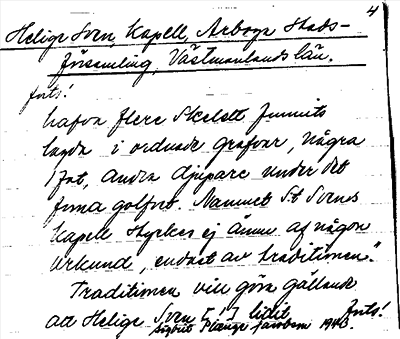 4
Helige Sven, Kapell, Arboga Stads-
församling, Västmanlands län.
forts!
hafva flere Skelett funnits
lagda i ordnade grafvar, några
1 fot, andra djupare under det
forna golfvet. Namnet S:t Svens
Kapell styrkes ej ännu af någon
urkund, endast av traditionen."
Traditionen vill göra gällande
att Helige Sven [!] lidit forts!
1943.